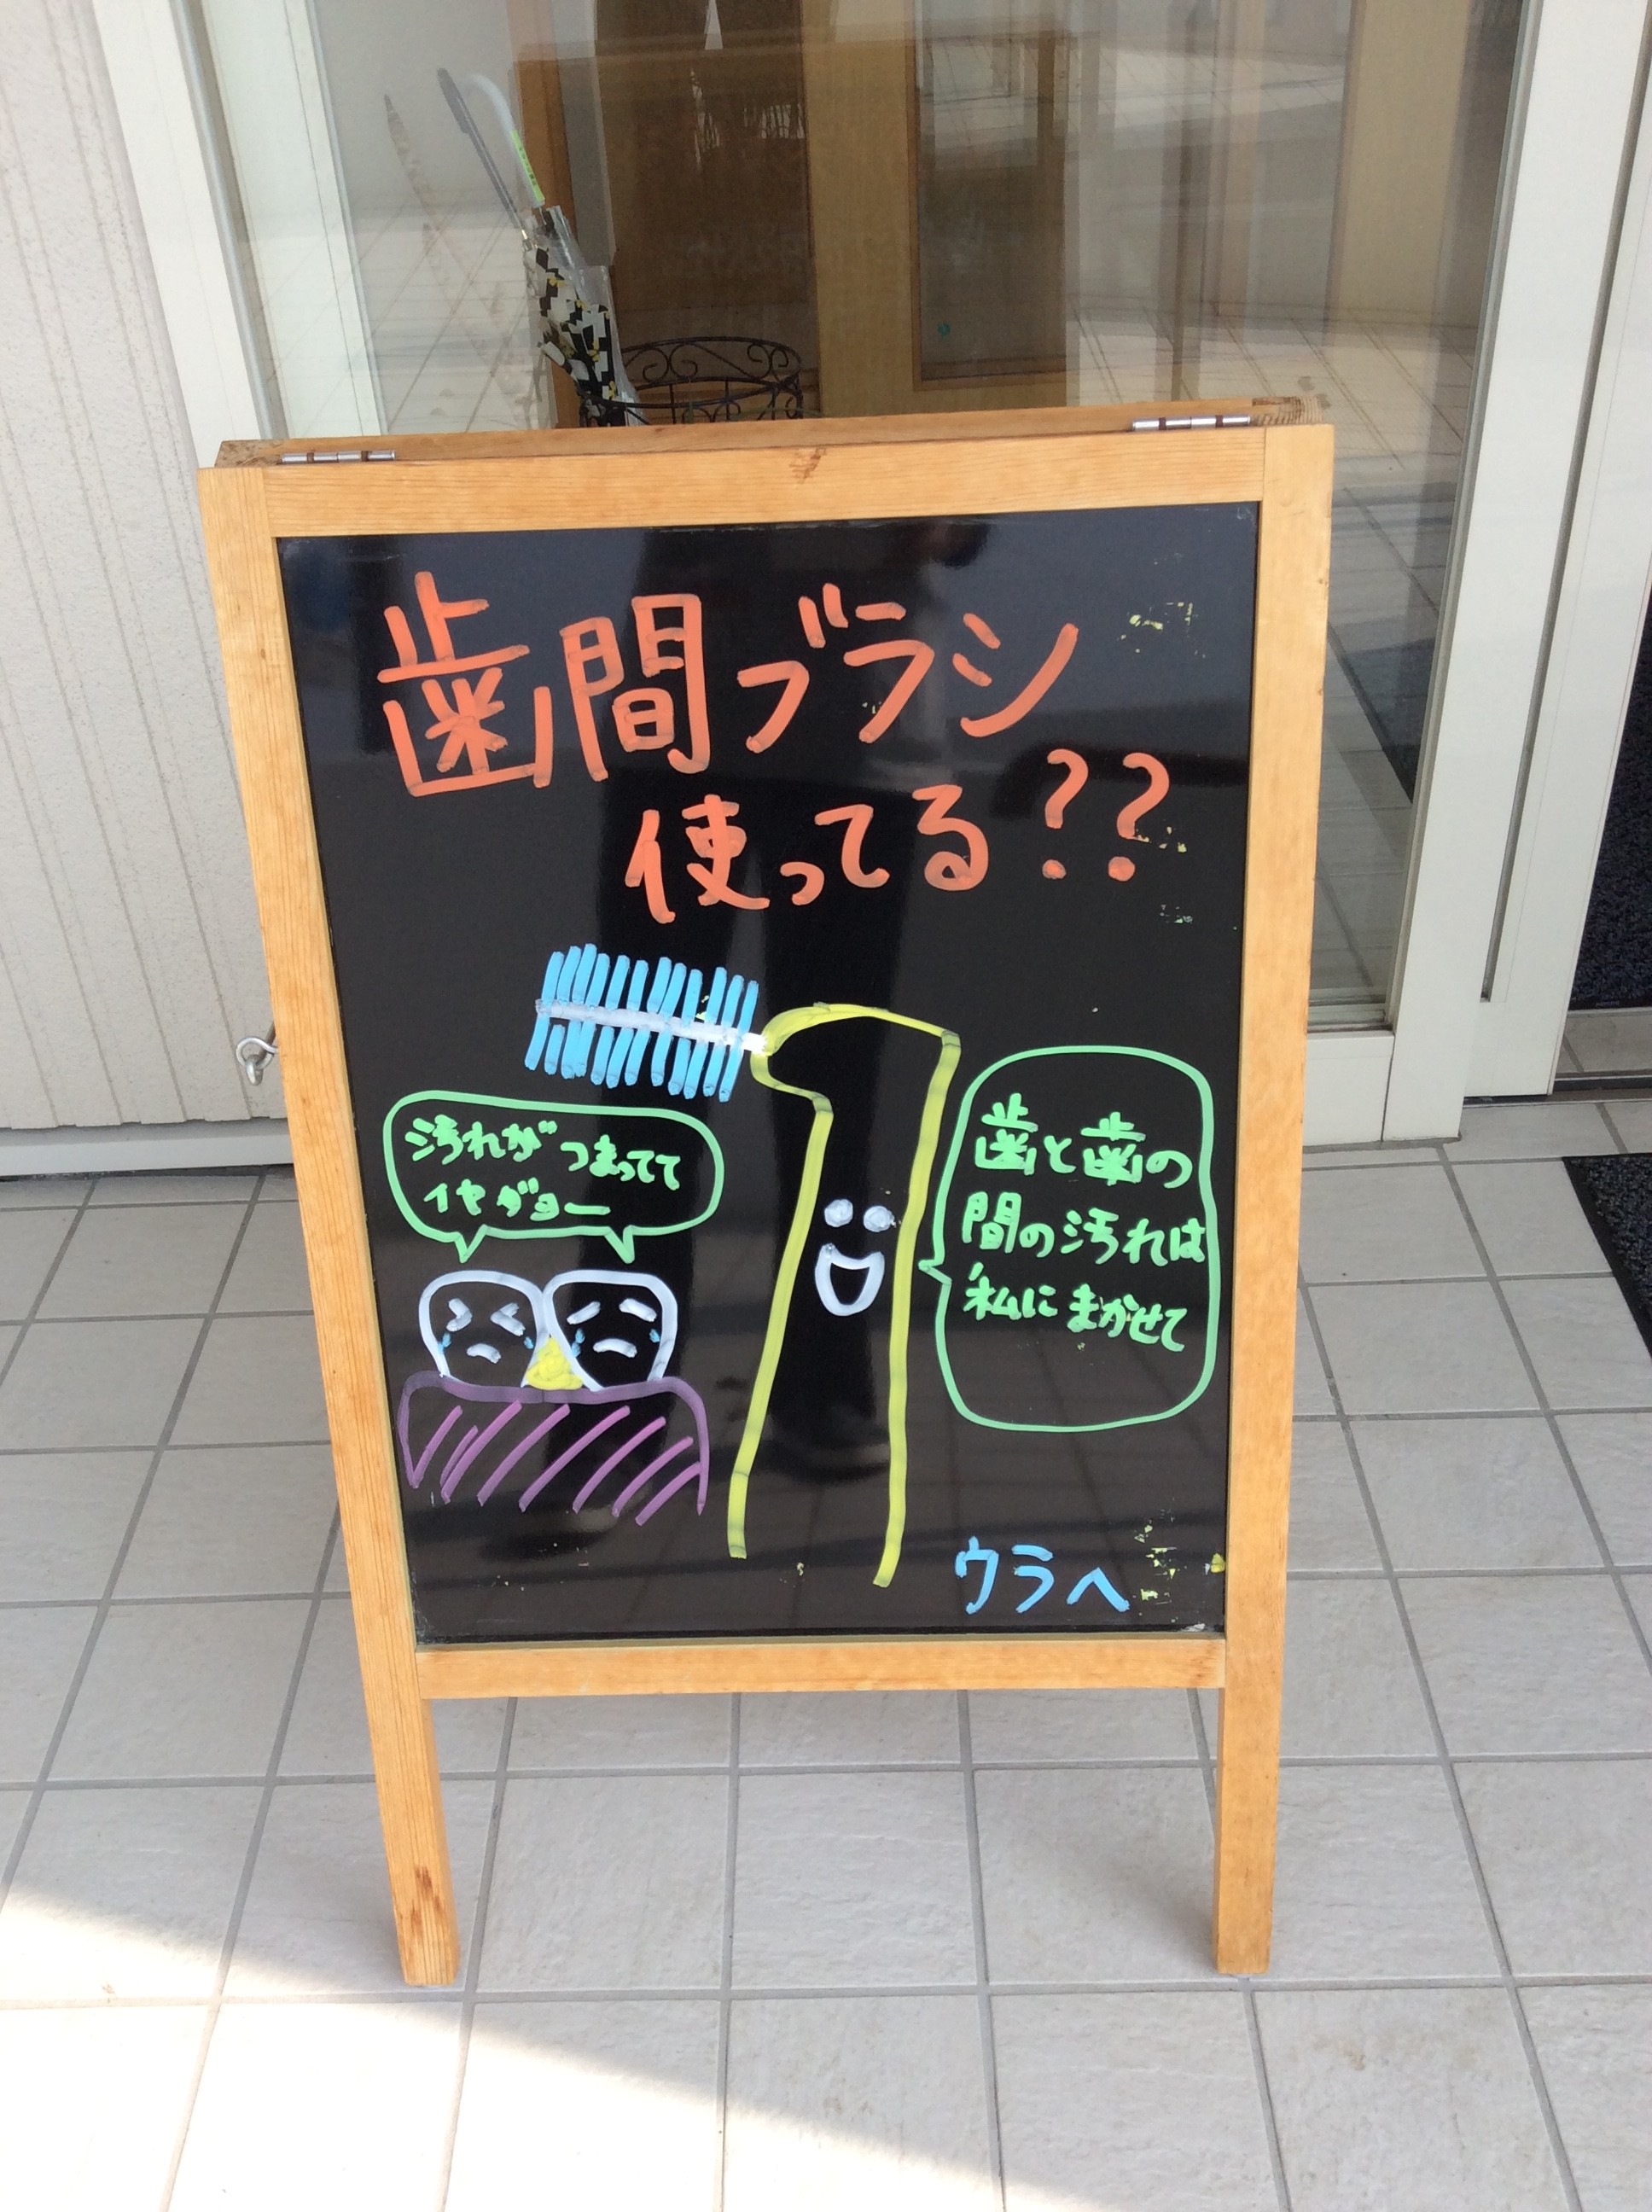 歯間ブラシ
使ってる??
汚れがつまってて
イヤダヨー
歯と歯の
間の汚れは
私にまかせて
ウラへ